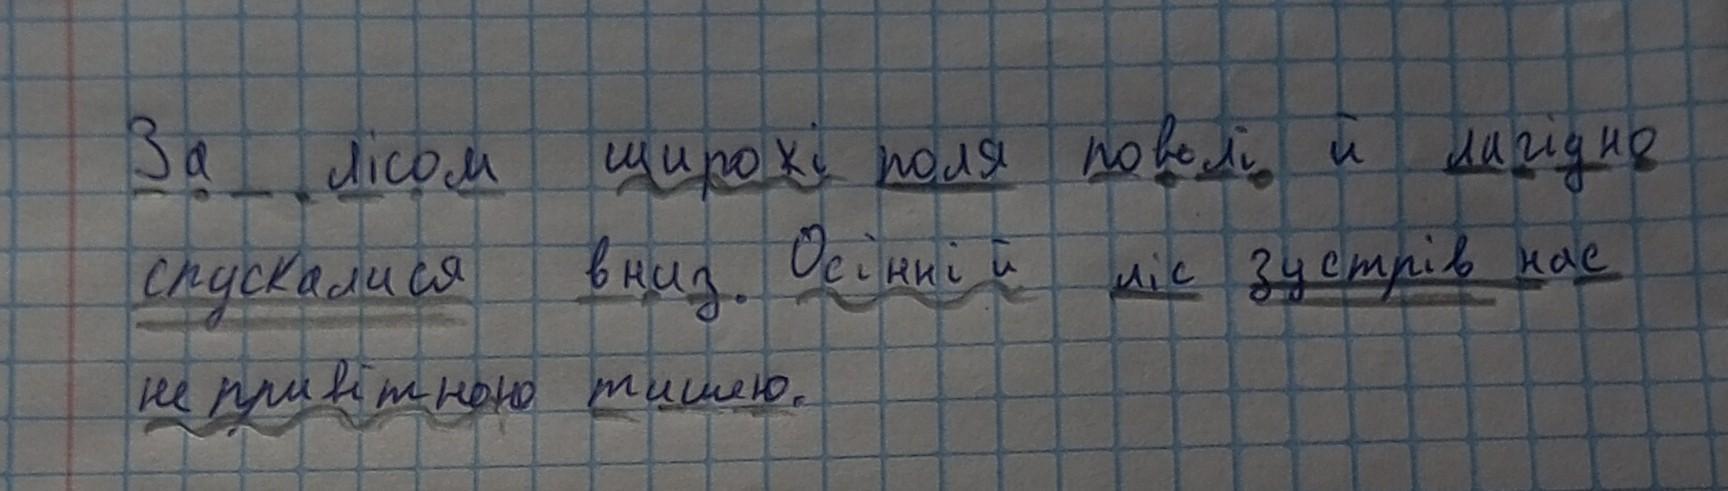 За лісом широкі поля поволі й лагідно
спускалися вниз. Осінній ліс зустрів нас
непривітною тишею.